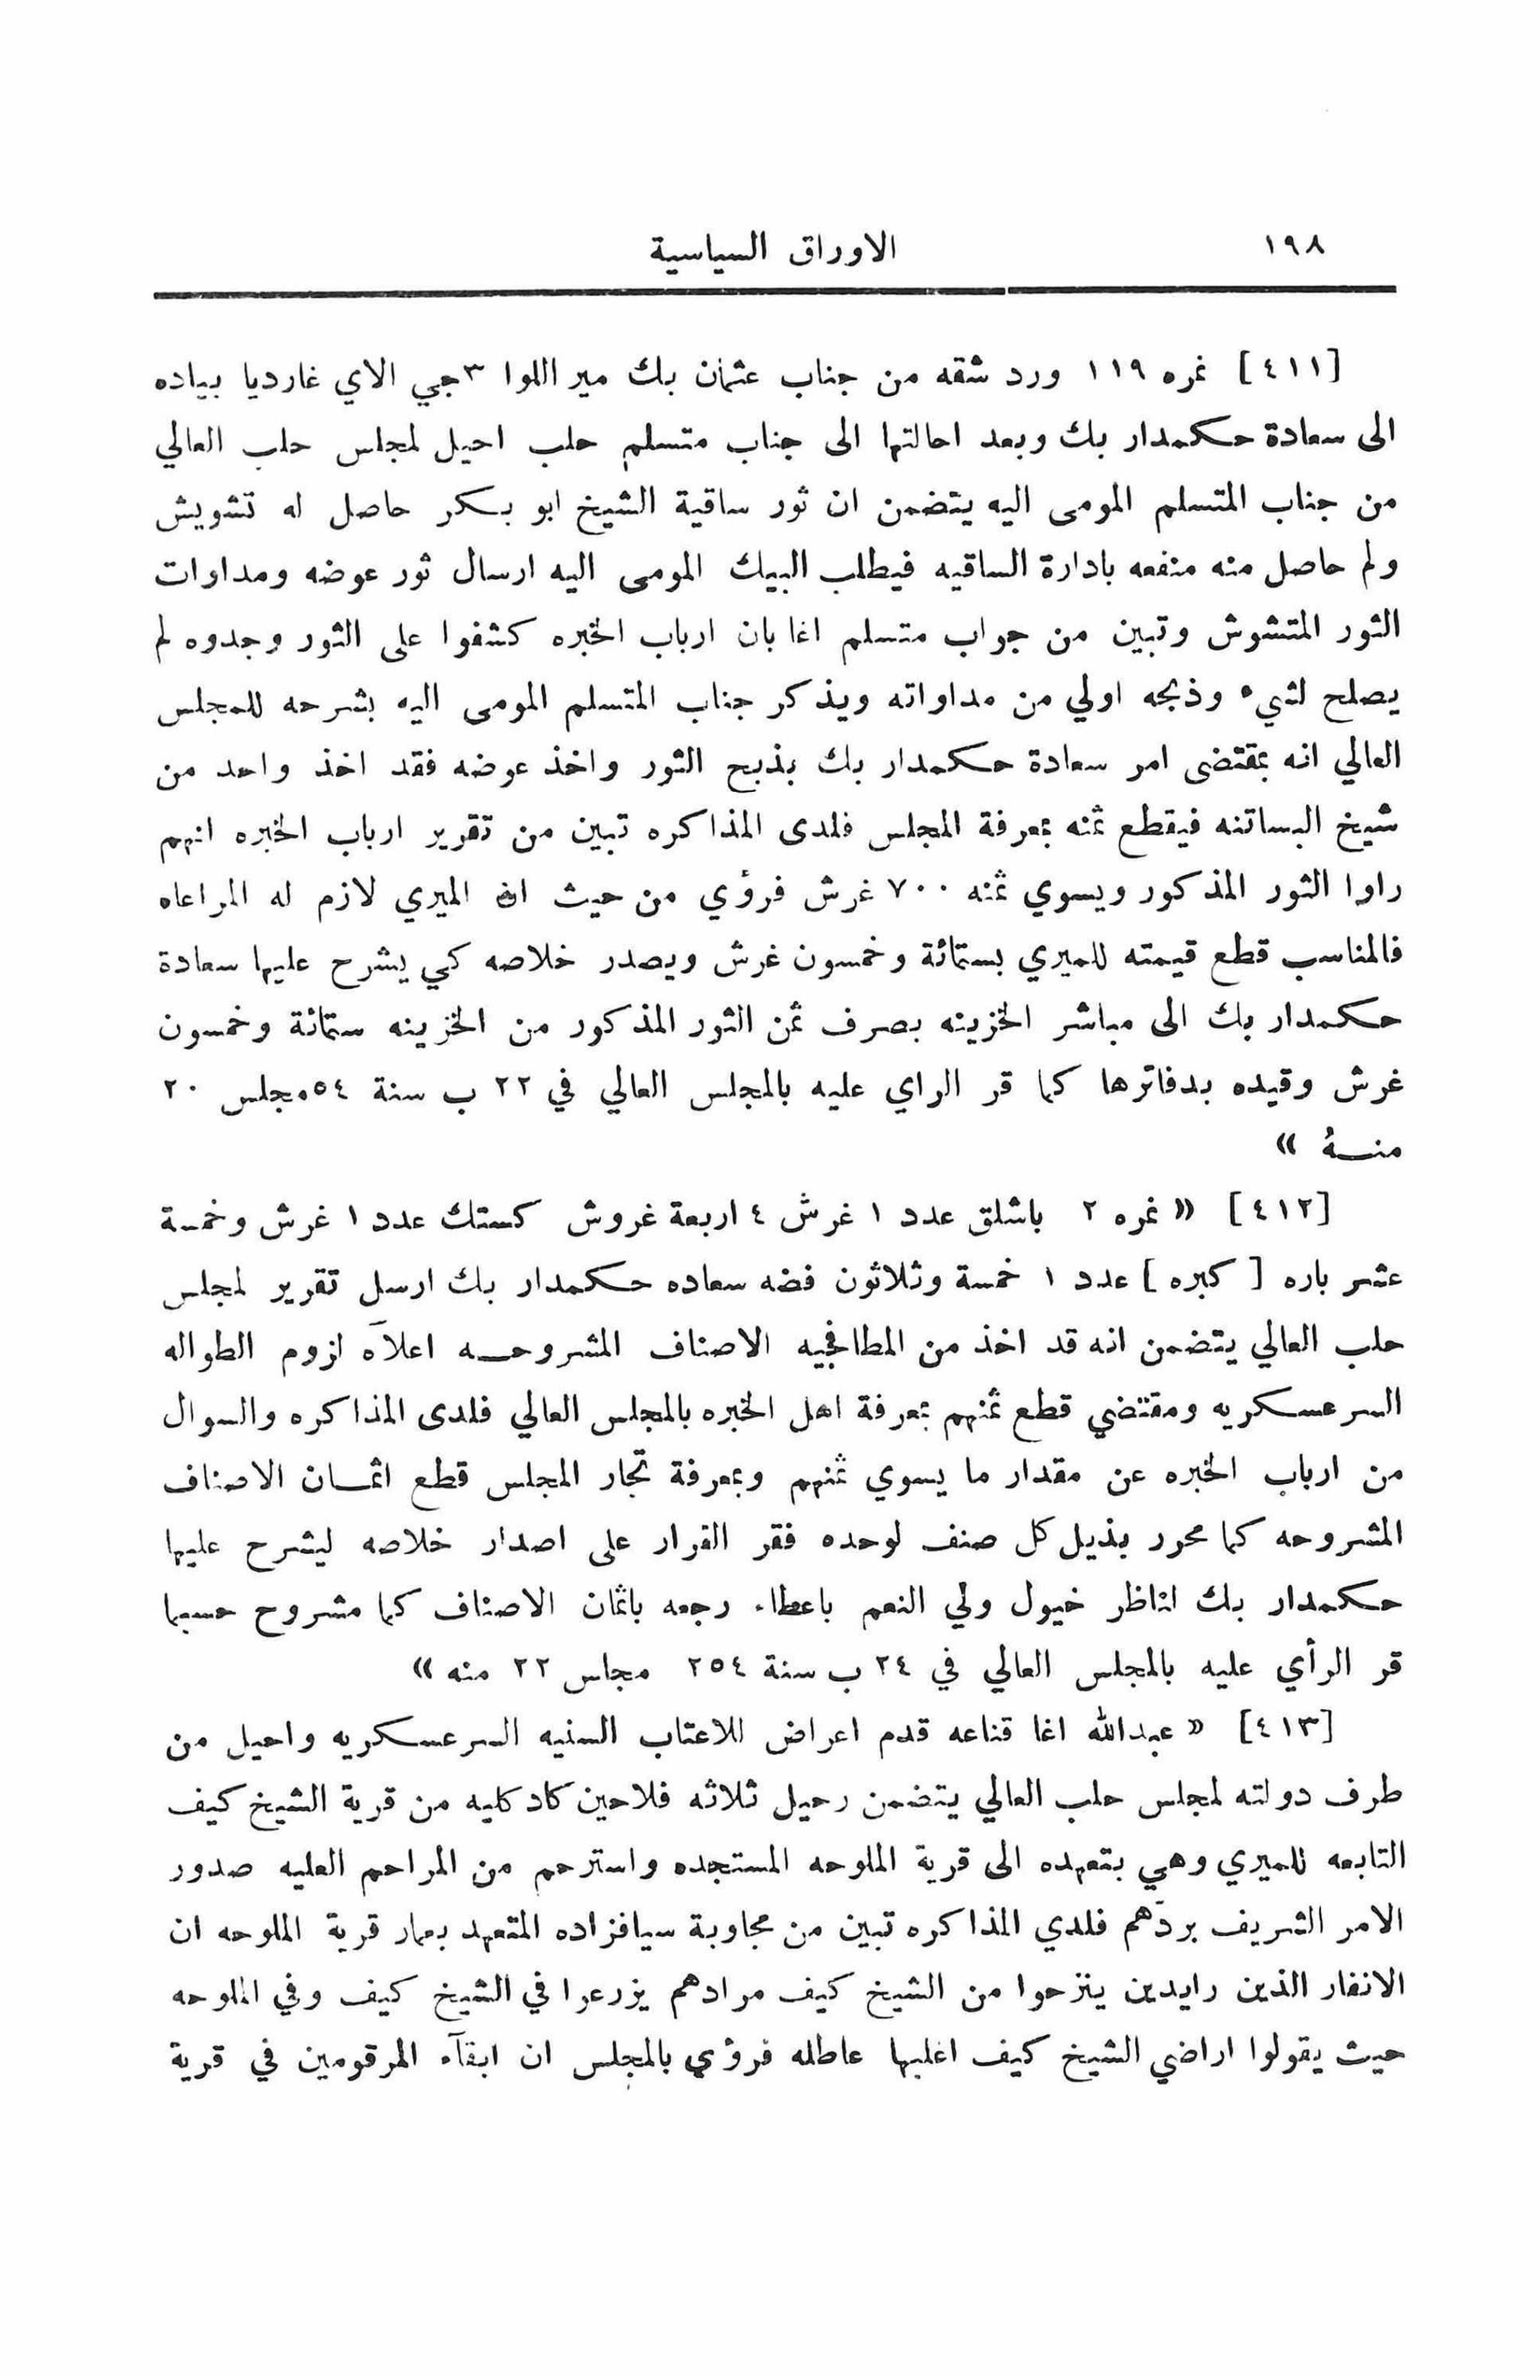 ١٩٨
الاوراق السياسية
[٤١١] نمره ١١٩ ورد شقه من جناب عثمان بك مير اللوا ٣جي الاي غارديا بياده
الى سعادة حكمدار بك وبعد احالتها الى جناب متسلم حلب احيل لمجلس حلب العالي
من جناب المتسلم المومى اليه يتضمن ان ثور ساقية الشيخ ابو بكر حاصل له تشويش
ولم حاصل منه منفعه بادارة الساقيه فيطلب البيك المومى اليه ارسال ثور عوضه ومداوات
الثور المتشوش وتبين من جواب متسلم اغا بان ارباب الخبره كشفوا على الثور وجدوه لم
يصلح لشيء وذبحه اولي من مداواته ويذكر جناب المتسلم المومى اليه بشرحه للمجلس
العالي انه بمقتضى امر سعادة حكمدار بك بذبح الثور واخذ عوضه فقد اخذ واحد من
شيخ البساتنه فيقطع ثمنه بمعرفة المجلس فلدى المذاكره تبين من تقرير ارباب الخبره انهم
راوا الثور المذكور ويسوي ثمنه ٧٠٠ غرش فرؤي من حيث ان الميري لازم له المراعاه
فالمناسب قطع قيمته للميري بستمائة وخمسون غرش ويصدر خلاصه كي يشرح عليها سعادة
حكمدار بك الى مباشر الخزينه بصرف ثمن الثور المذكور من الخزينه ستمائة وخمسون
غرش وقيده بدفاترها كما قر الراي عليه بالمجلس العالي في ٢٢ ب سنة ٥٤ مجلس ٢٠
منــهُ »
[٤١٢] « نمره ٢ باشلق عدد ١ غرش ٤ اربعة غروش كستك عدد ١ غرش وخمسة
عشر باره [ كبره ] عدد ١ خمسة وثلاثون فضه سعاده حكمدار بك ارسل تقرير لمجلس
حلب العالي يتضمن انه قد اخذ من المطافجيه الاصناف المشروحــه اعلآه لزوم الطواله
السرعسكريه ومقتضي قطع ثمنهم بمعرفة اهل الخبره بالمجلس العالي فلدى المذاكره والسوال
من ارباب الخبره عن مقدار ما يسوي ثمنهم وبمعرفة تجار المجلس قطع اثمــان الاصناف
المشروحه كما محرر بذيل كل صنف لوحده فقر القرار على اصدار خلاصه ليشرح عليها
حكمدار بك لناظر خيول ولي النعم باعطاء رجعه باثمان الاصناف كما مشروح حسبما
قر الرأي عليه بالمجلس العالي في ٢٤ ب سنة ٢٥٤ مجلس ٢٢ منه »
[٤١٣] « عبدالله اغا قناعه قدم اعراض للاعتاب السنيه السرعسكريه واحيل من
طرف دولته لمجلس حلب العالي يتضمن رحيل ثلاثه فلاحين كادكليه من قرية الشيخ كيف
التابعه للميري وهي بتعهده الى قرية الملوحه المستجده واسترحم من المراحم العليه صدور
الامر الشريف بردّهم فلدي المذاكره تبين من مجاوبة سيافزاده المتعهد بعمار قرية الملوحه ان
الانفار الذين رايدين ينزحوا من الشيخ كيف مرادهم يزرعوا في الشيخ كيف وفي الملوحه
حيث يقولوا اراضي الشيخ كيف اغلبها عاطله فرؤي بالمجلس ان ابقآء المرقومين في قرية